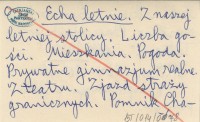 Echa letnie. Z naszej
letniej stolicy. Liczba go-
ści. Mieszkania. Pogoda.
Prywatne gimnazjum realne.
Z teatru. Zjazd straży
granicznych. Pomnik Cha-